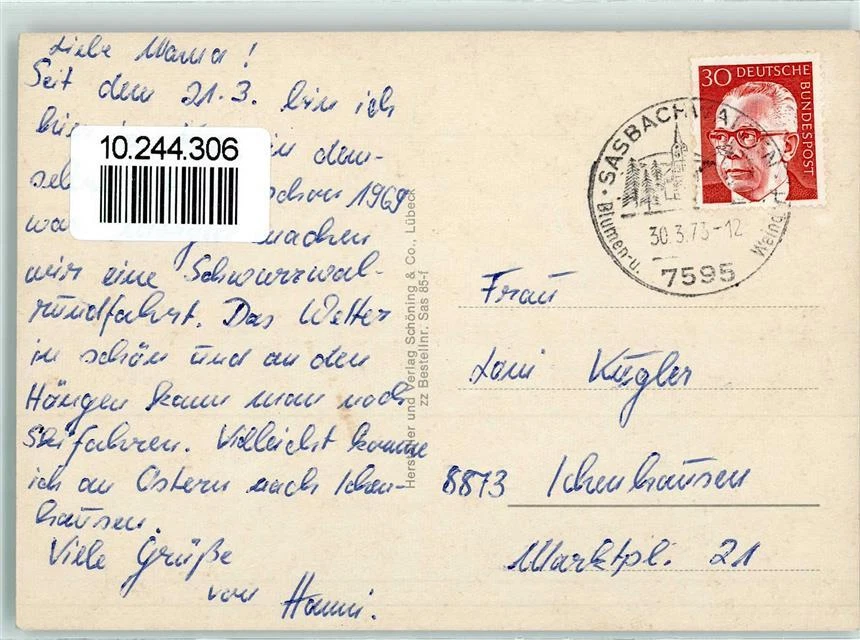 Liebe Mama!
Seit dem 21.3. bin ich
in dem-
schon 1969
machen
wir eine Schwarzwal-
rundfahrt. Das Wetter
ist schön und an den
Hängen kann man noch
Skifahren. Vielleicht komme
ich an Ostern nach Ichen-
hausen.
Viele Grüße
von Hanni.
10.244.306
Hersteller und Verlag Schöning & Co., Lübeck
zz Bestellnr. Sas 85-f
30 DEUTSCHE
BUNDESPOST
SASBACHWALDEN
Blumen-u.
30.3.73-12
7595
Frau
Loni Kügler
8873 Ichenhausen
Marktpl. 21